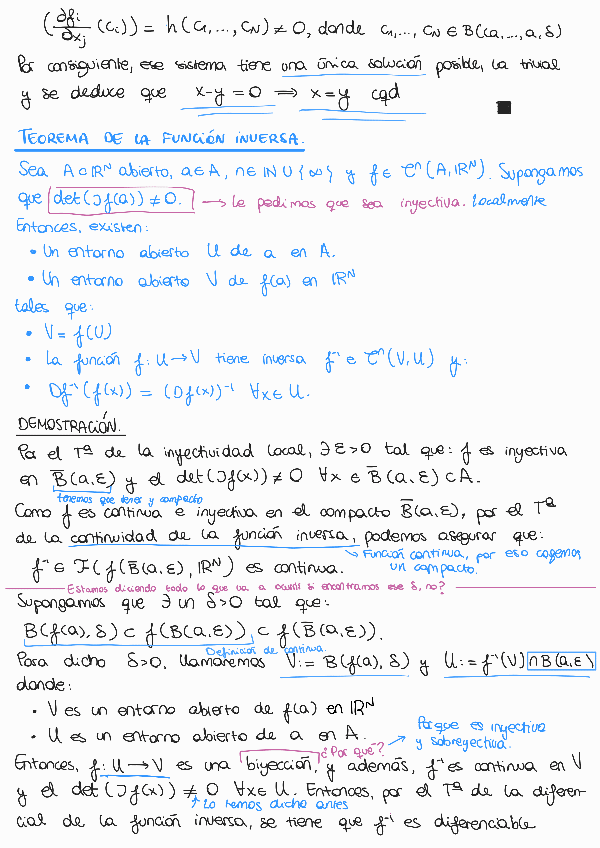 (∂fi/∂xj (ci)) = h(c1,...,cN) ≠ 0, donde c1,..., cN ∈ B((a,...,a,δ)
Por consiguiente, ese sistema tiene una única solución posible, la trivial
y se deduce que x-y = 0 ⟹ x = y cqd ■
TEOREMA DE LA FUNCIÓN INVERSA.
Sea A⊂ℝᴺ abierto, a∈A, n∈ℕ∪{∞} y f∈ 𝒞ⁿ(A,ℝᴺ). Supongamos
que det(Jf(a)) ≠ 0. → le pedimos que sea inyectiva. localmente
Entonces, existen:
• Un entorno abierto U de a en A.
• Un entorno abierto V de f(a) en ℝᴺ
tales que:
• V = f(U)
• La función f: U → V tiene inversa f⁻¹ ∈ 𝒞ⁿ(V,U) y:
• Df⁻¹(f(x)) = (Df(x))⁻¹ ∀x∈U.
DEMOSTRACIÓN.
Por el Tª de la inyectividad local, ∃ε>0 tal que: f es inyectiva
en B̅(a,ε) y el det(Jf(x)) ≠ 0 ∀x ∈ B̅(a,ε) ⊂ A.
tenemos que tener y compacto
Como f es continua e inyectiva en el compacto B̅(a,ε), por el Tª
de la continuidad de la función inversa, podemos asegurar que:
f⁻¹ ∈ ℱ(f(B̅(a,ε), ℝᴺ) es continua.
↘ Función continua, por eso cogemos
un compacto.
Estamos diciendo todo lo que va a ocurrir si encontramos ese δ, no?
Supongamos que ∃ un δ>0 tal que:
B(f(a),δ) ⊂ f(B(a,ε)) ⊂ f(B̅(a,ε)).
Definición de continua.
Para dicho δ>0, llamaremos V:= B(f(a), δ) y U:= f⁻¹(V)∩B(a,ε)
donde:
• V es un entorno abierto de f(a) en ℝᴺ
• U es un entorno abierto de a en A.
Porque es inyectiva
y sobreyectiva.
¿Por qué?
Entonces, f: U → V es una biyección, y además, f⁻¹ es continua en V
y el det(Jf(x)) ≠ 0 ∀x∈U. Entonces, por el Tª de la diferen-
↑ Lo hemos dicho antes
cial de la función inversa, se tiene que f⁻¹ es diferenciable